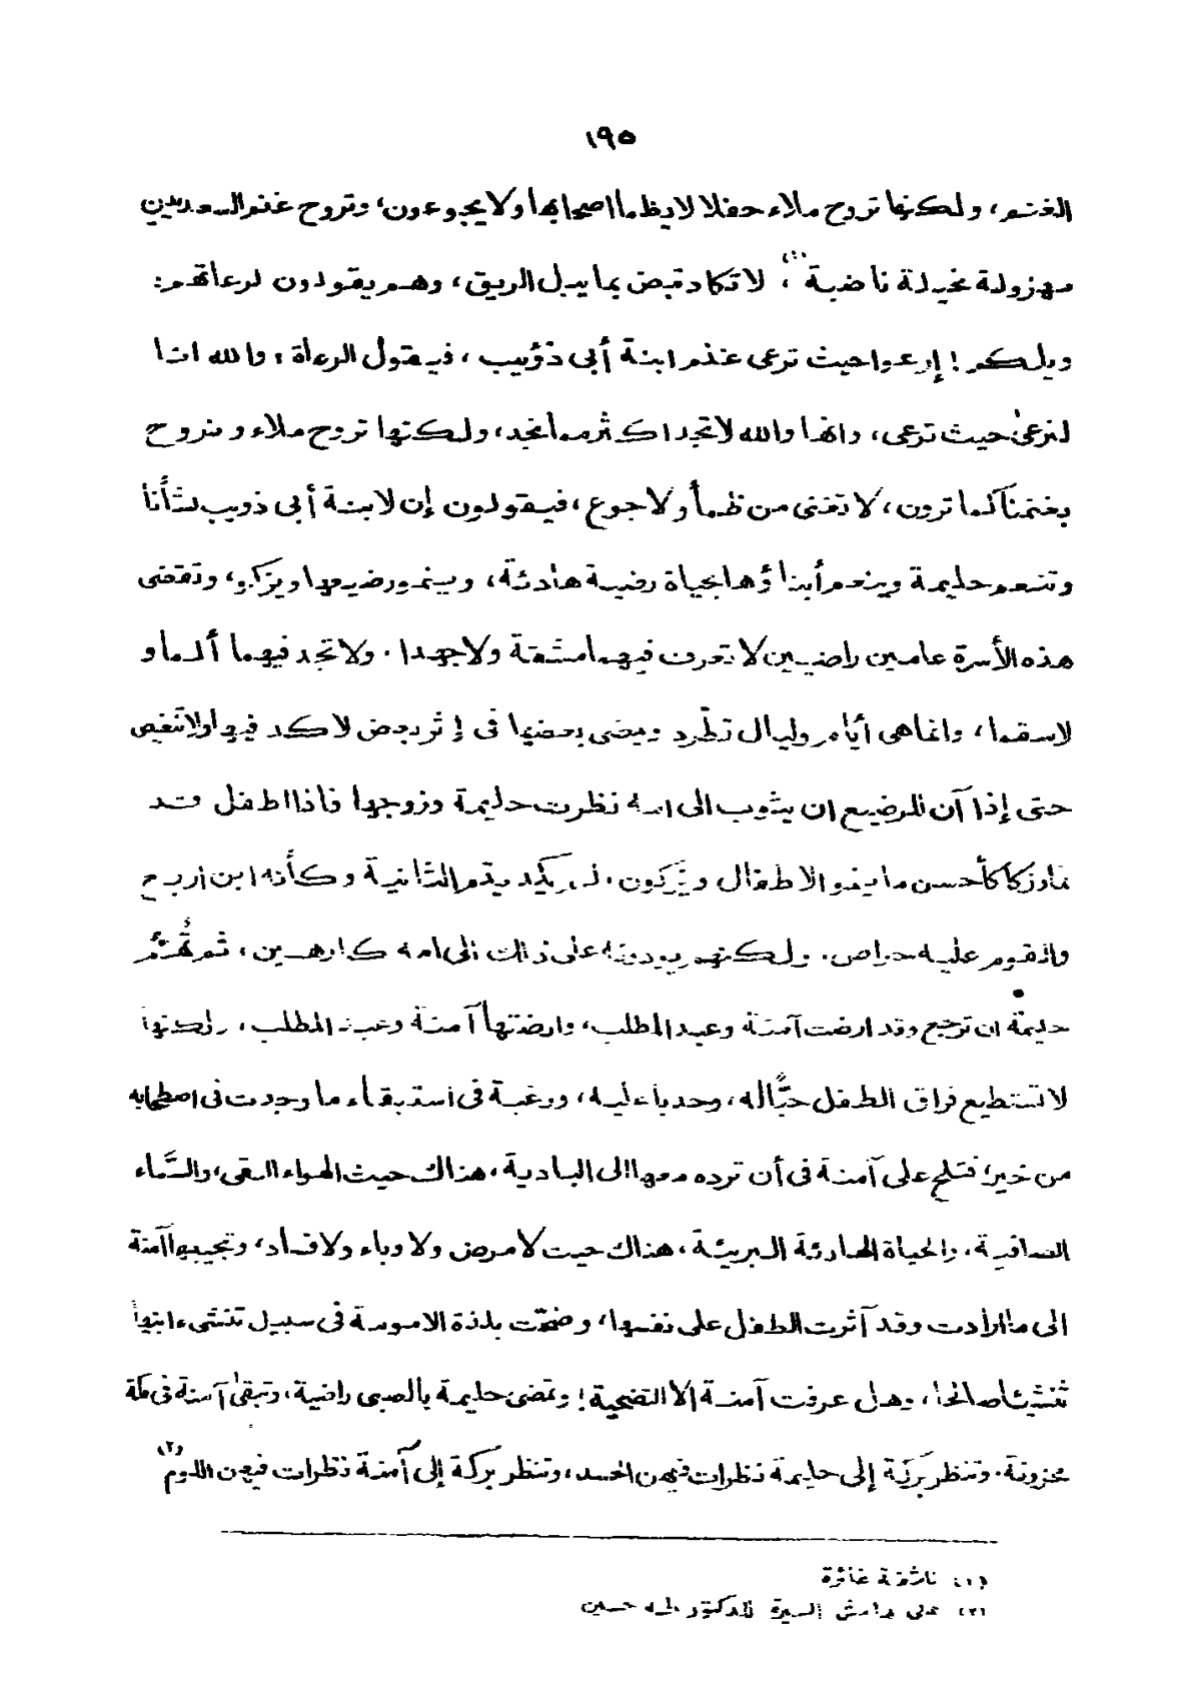 ١٩٥
الغنم، ولكنها تروح ملاء حفلا لا يظما اصحابها ولا يجوعون، وتروح غنم السعديين
مهزولة نحيلة ناضبة (١)، لا تكاد تبض بما يبل الريق، وهم يقولون لرعاتهم:
ويلكم! إرعوا حيث ترعى غنم ابنة أبى ذؤيب، فيقول الرعاة: والله انا
لنرعى حيث ترعى، وانها والله لا تجد اكثر مما نجد، ولكنها تروح ملاء ونروح
بغنمنا كما ترون، لا تغنى من ظمأ ولا جوع، فيقولون إن لابنة أبى ذويب لشأنا
وتنعم حليمة وينعم أبناؤها بحياة رضية هادئة، وينمو رضيعها ويزكو، وتقضى
هذه الأسرة عامين راضيين لا تعرف فيهما مشقة ولا جهدا. ولا تجد فيهما ألما و
لا سقما، وانما هى أيام وليال تطّرد ويمضى بعضها فى إثر بعض لا كد فيها ولا تنغيص
حتى إذا آن للرضيع ان يثوب الى امه نظرت حليمة وزوجها فاذا الطفل قد
نما وزكا كأحسن ما ينمو الاطفال ويزكون. لم يكد يتم الثانية وكأنه ابن اربع
والقوم عليه حراص. ولكنهم يردونه على ذلك الى امه كارهين، ثم تهُمّ
حليمة ان ترجع وقد ارضت آمنة وعبد المطلب، وارضتها آمنة وعبد المطلب، ولكنها
لا تستطيع فراق الطفل حبًّا له، وحدبا عليه، ورغبة فى استبقاء ما وجدت فى اصطحابه
من خير؛ فتلح على آمنة فى أن ترده معها الى البادية، هناك حيث الهواء النقى، والسّماء
الصافية، والحياة الهادئة البريئة، هناك حيث لا مرض ولا وباء ولا فساد، وتجيبها آمنة
الى ما أرادت وقد آثرت الطفل على نفسها، وضحّت بلذة الامومة فى سبيل تنشىء ابنها
تنشيئا صالحا، وهل عرفت آمنة الا التضحية! وتمضى حليمة بالصبى راضية، وتبقى آمنة فى مكة
محزونة. وتنظر بركة إلى حليمة نظرات فيهن الحسد، وتنظر بركة إلى آمنة نظرات فيهن اللوم (٢)
(١) ناشفة غائرة
(٢) على هامش السيرة للدكتور طه حسين